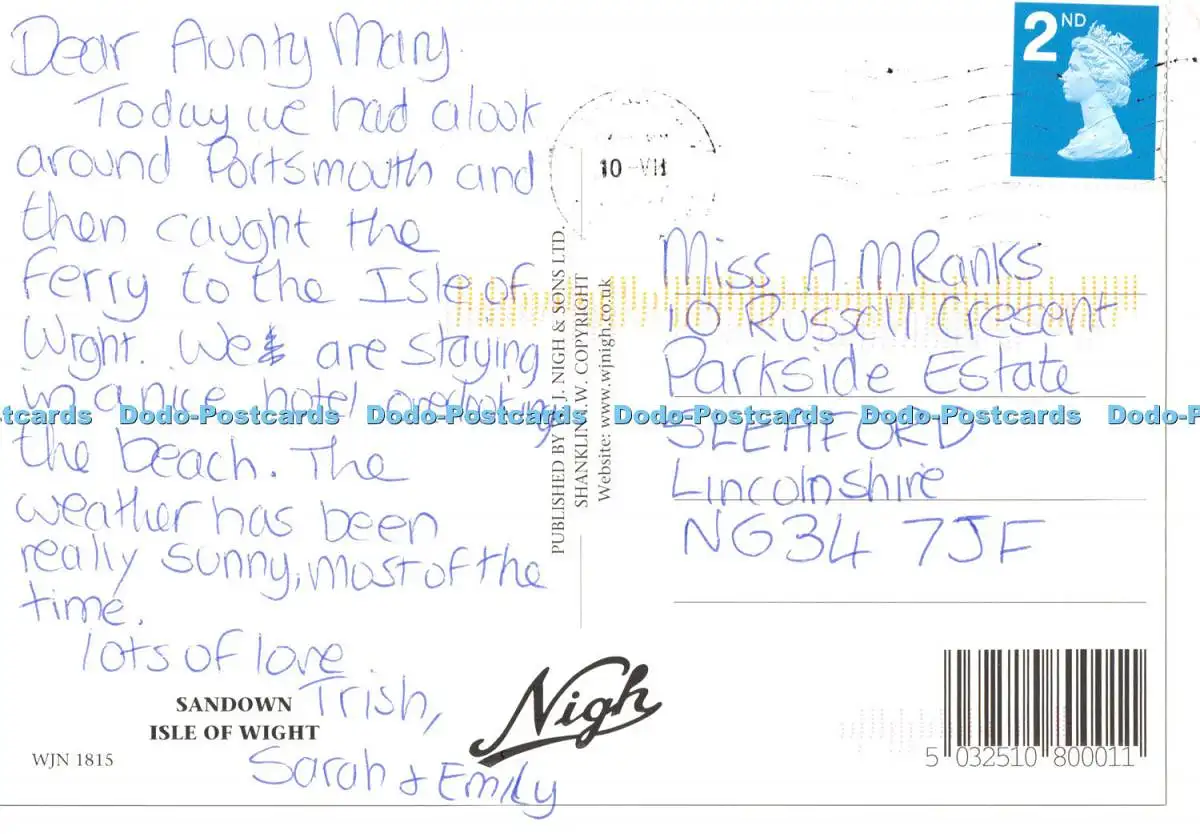 Dear Aunty Mary.
Today we had a look
around Portsmouth and
then caught the
Ferry to the Isle of
Wright. We are staying
in a nice hotel overlooking
the beach. The
weather has been
really sunny, most of the
time.
lots of love
Trish,
Sarah & Emily
SANDOWN
ISLE OF WIGHT
WJN 1815
PUBLISHED BY W. J. NIGH & SONS LTD.
SHANKLIN I.W. COPYRIGHT
Website: www.wjnigh.co.uk
Nigh
2ND
10-VII
Miss A M Ranks
10 Russell Cresent
Parkside Estate
SLEAFORD
Lincolnshire
NG34 7JF
5 032510 800011
ostcards Dodo-Postcards Dodo-Postcards Dodo-Postcards Dodo-Postcards Dodo-P